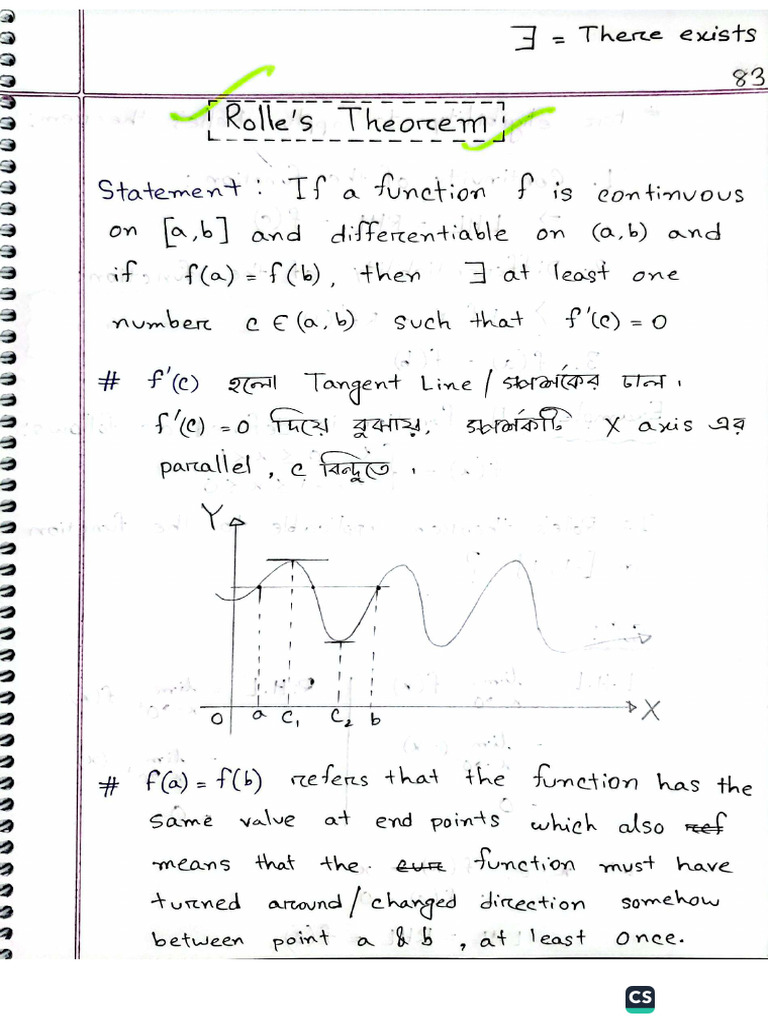 ∃ = There exists
83
Rolle's Theorem
Statement: If a function f is continuous
on [a,b] and differentiable on (a,b) and
if f(a) = f(b), then ∃ at least one
number c ∈ (a,b) such that f'(c) = 0
# f'(c) হলো Tangent Line / স্পর্শকের ঢাল।
f'(c) = 0 দিয়ে বুঝায়, স্পর্শকটি X axis এর
parallel, c বিন্দুতে।
Y
O a C₁ C₂ b X
# f(a) = f(b) refers that the function has the
same value at end points which also ref
means that the cur function must have
turned around/changed direction somehow
between point a & b, at least once.
CS